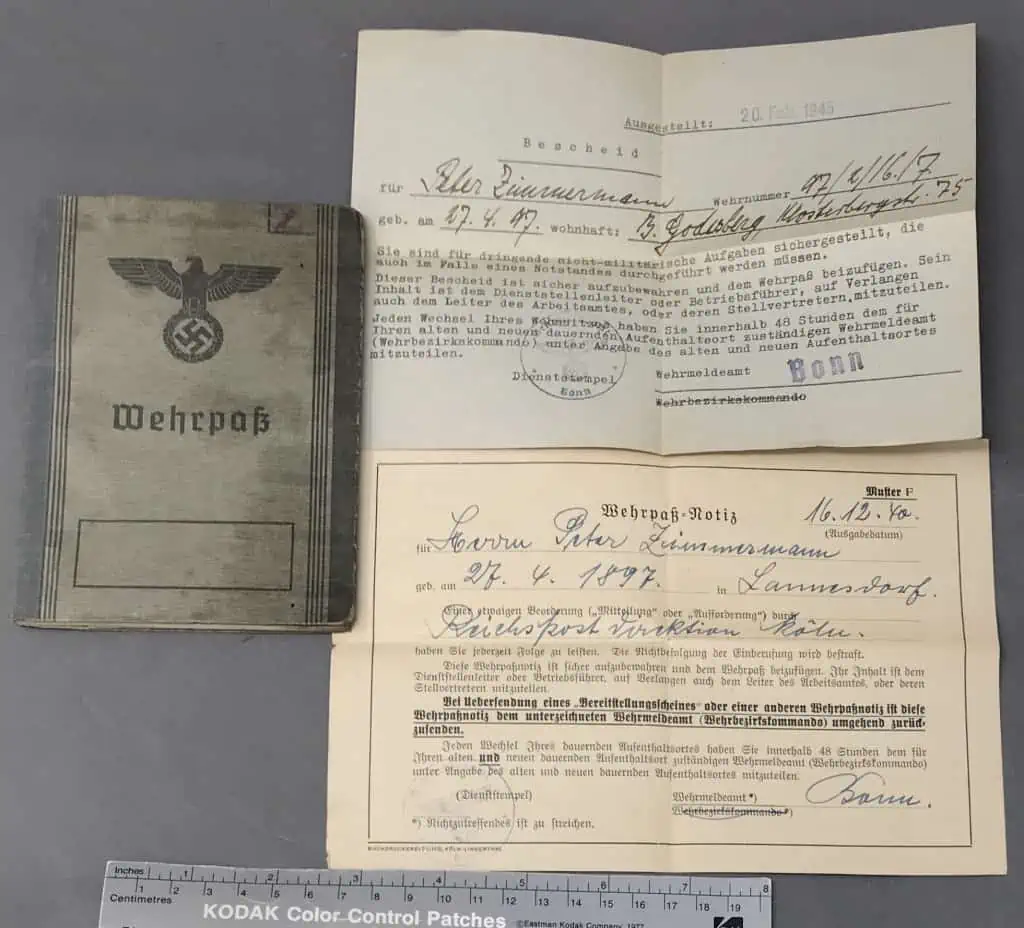 Wehrpaß
Ausgestellt: 20. Feb. 1945
Bescheid
für Peter Zimmermann Wehrnummer 97/2/16/7
geb. am 27.4.97. wohnhaft: B. Godesberg Klosterbergstr. 75
Sie sind für dringende nicht-militärische Aufgaben sichergestellt, die
auch im Falle eines Notstandes durchgeführt werden müssen.
Dieser Bescheid ist sicher aufzubewahren und dem Wehrpaß beizufügen. Sein
Inhalt ist dem Dienststellenleiter oder Betriebsführer, auf Verlangen
auch dem Leiter des Arbeitsamtes, oder deren Stellvertretern, mitzuteilen.
Jeden Wechsel Ihres Wohnsitzes haben Sie innerhalb 48 Stunden dem für
Ihren alten und neuen dauernden Aufenthaltsort zuständigen Wehrmeldeamt
(Wehrbezirkskommando) unter Angabe des alten und neuen Aufenthaltsortes
mitzuteilen.
Dienststempel Wehrmeldeamt Bonn
Bonn
Wehrbezirkskommando
Muster F
Wehrpaß-Notiz 16.12.40.
(Ausgabedatum)
für Herrn Peter Zimmermann
geb. am 27. 4. 1897. in Lannesdorf.
Einer etwaigen Beorderung („Mitteilung“ oder „Aufforderung“) durch
Reichspostdirektion Köln.
haben Sie jederzeit Folge zu leisten. Die Nichtbefolgung der Einberufung wird bestraft.
Diese Wehrpaßnotiz ist sicher aufzubewahren und dem Wehrpaß beizufügen. Ihr Inhalt ist dem
Dienststellenleiter oder Betriebsführer, auf Verlangen auch dem Leiter des Arbeitsamtes, oder deren
Stellvertretern mitzuteilen.
Bei Uebersendung eines „Bereitstellungsscheines“ oder einer anderen Wehrpaßnotiz ist diese
Wehrpaßnotiz dem unterzeichneten Wehrmeldeamt (Wehrbezirkskommando) umgehend zurück-
zusenden.
Jeden Wechsel Ihres dauernden Aufenthaltsortes haben Sie innerhalb 48 Stunden dem für
Ihren alten und neuen dauernden Aufenthaltsort zuständigen Wehrmeldeamt (Wehrbezirkskommando)
unter Angabe des alten und neuen dauernden Aufenthaltsortes mitzuteilen.
(Dienststempel) Wehrmeldeamt *) Bonn.
Wehrbezirkskommando *)
*) Nichtzutreffendes ist zu streichen.
Inches 1 2 3 4 5 6 7 8
Centimetres 1 2 3 4 5 6 7 8 9 10 11 12 13 14 15 16 17 18 19
KODAK Color Control Patches
©Eastman Kodak Company, 1977